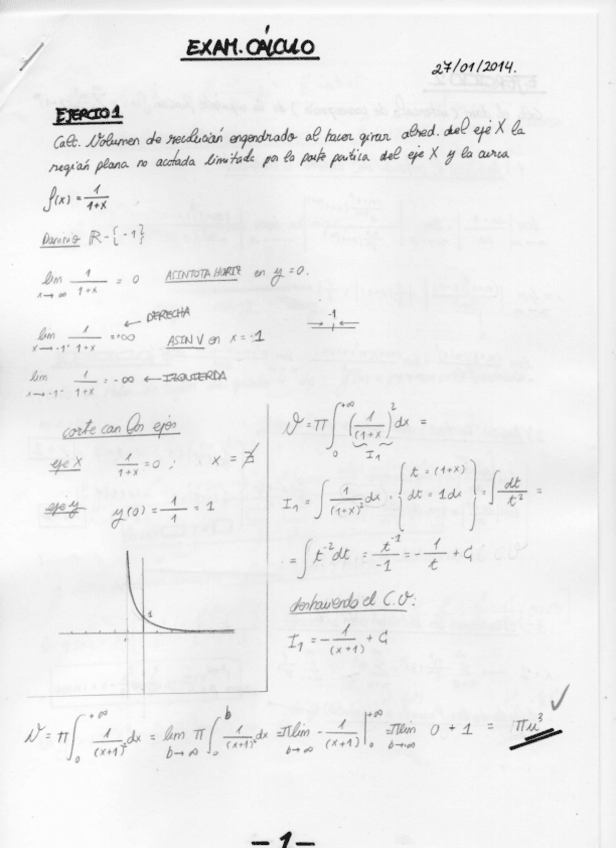 EXAM. CÁLCULO
27/01/2014.
EJERCIO 1
Calc. Volumen de revolución engendrado al hacer girar alred. del eje X la
región plana no acotada limitada por la parte positica del eje X y la curva
f(x) = 1/(1+x)
Dominio R - {-1}
lim x→∞ 1/(1+x) = 0 ASINTOTA HORIZ en y = 0.
lim x→-1⁺ 1/(1+x) = +∞ ← DERECHA ASIN V en x = -1
-1
lim x→-1⁻ 1/(1+x) = -∞ ← IZQUIERDA
corte con los ejes
eje X 1/(1+x) = 0 ; x = ∄
eje y y(0) = 1/1 = 1
1
V = π ∫₀^{+∞} (1/(1+x))² dx =
I₁
I₁ = ∫ 1/(1+x)² dx = { t = (1+x) dt = 1dx } = ∫ dt/t² =
= ∫ t⁻² dt = t⁻¹/-1 = - 1/t + C
deshaciendo el C.V:
I₁ = - 1/(x+1) + C
V = π ∫₀^{+∞} 1/(x+1)² dx = lim b→∞ π ∫₀^b 1/(x+1)² dx = π lim b→∞ - 1/(x+1) |₀^{+∞} = π lim b→∞ 0 + 1 = π u³
- 1 -